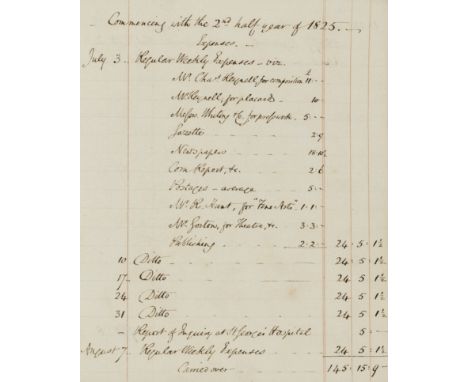 Commencing with the 2nd half year of 1825. —
Expenses. —
July 3 Regular Weekly Expenses – viz.
Mr. Chas. Reynell, for composition £11 . –
Mr. Reynell, for placards – 10
Messrs. Whiting & Co. for presswork 5 . –
Gazette 2 . 9
Newspapers 15 . 10½
Corn Report, &c. 2 . 6
Postages – average 5 . –
Mr. R. Hunt, for "Fine Arts" 1 . 1 . –
Mr. Gaston, for Theatre, &c. 3 . 3 . –
Publishing 2 . 2 24 . 5 . 1½
10 Ditto 24 . 5 . 1½
17 Ditto 24 . 5 . 1½
24 Ditto 24 . 5 . 1½
31 Ditto 24 . 5 . 1½
– Report of Inquiry at St George's Hospital 5 . –
August 7 Regular Weekly Expenses 24 . 5 . 1½
Carried over 145 . 15 . 9 –